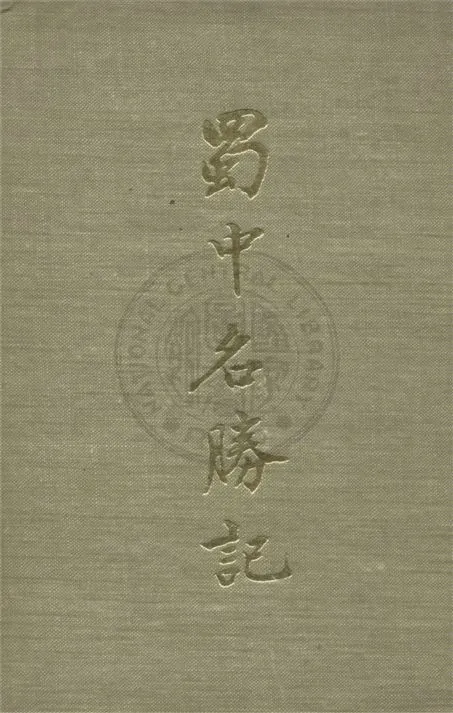 蜀中名勝記
NATIONAL CENTRAL LIBRARY